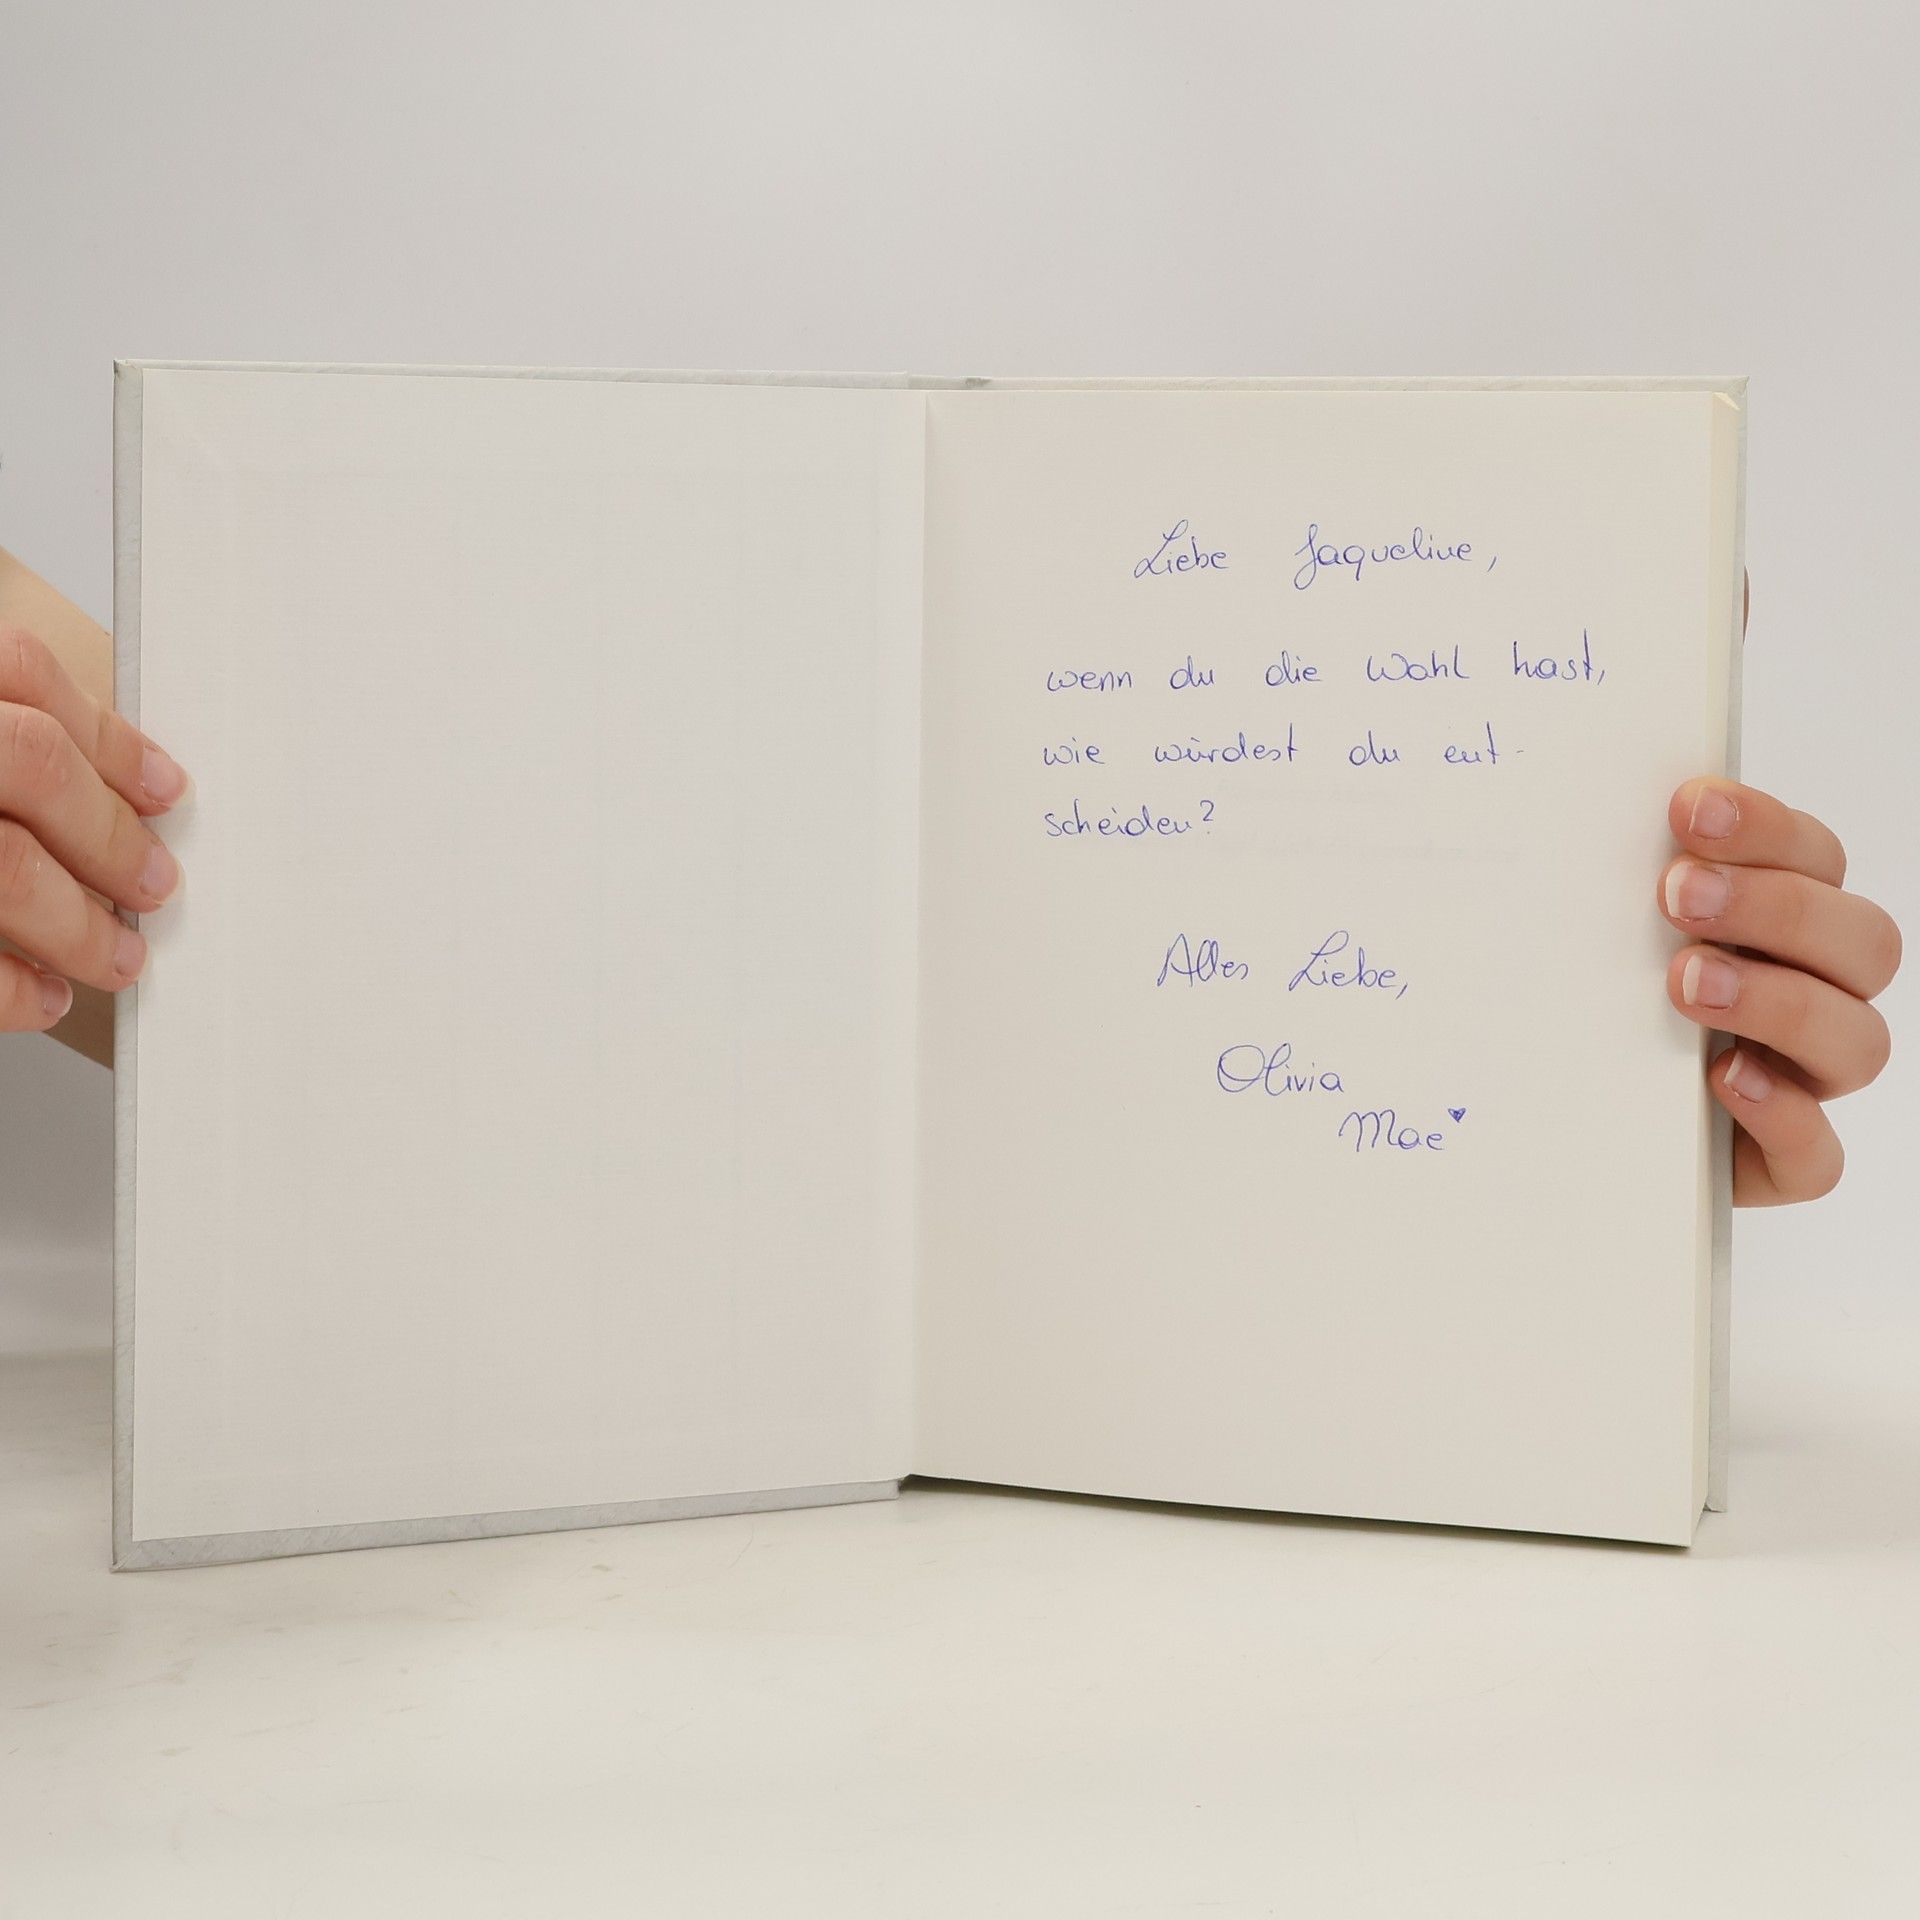 Liebe Jaqueline,
wenn du die Wahl hast,
wie würdest du ent-
scheiden?
Alles Liebe,
Olivia
Mae♥